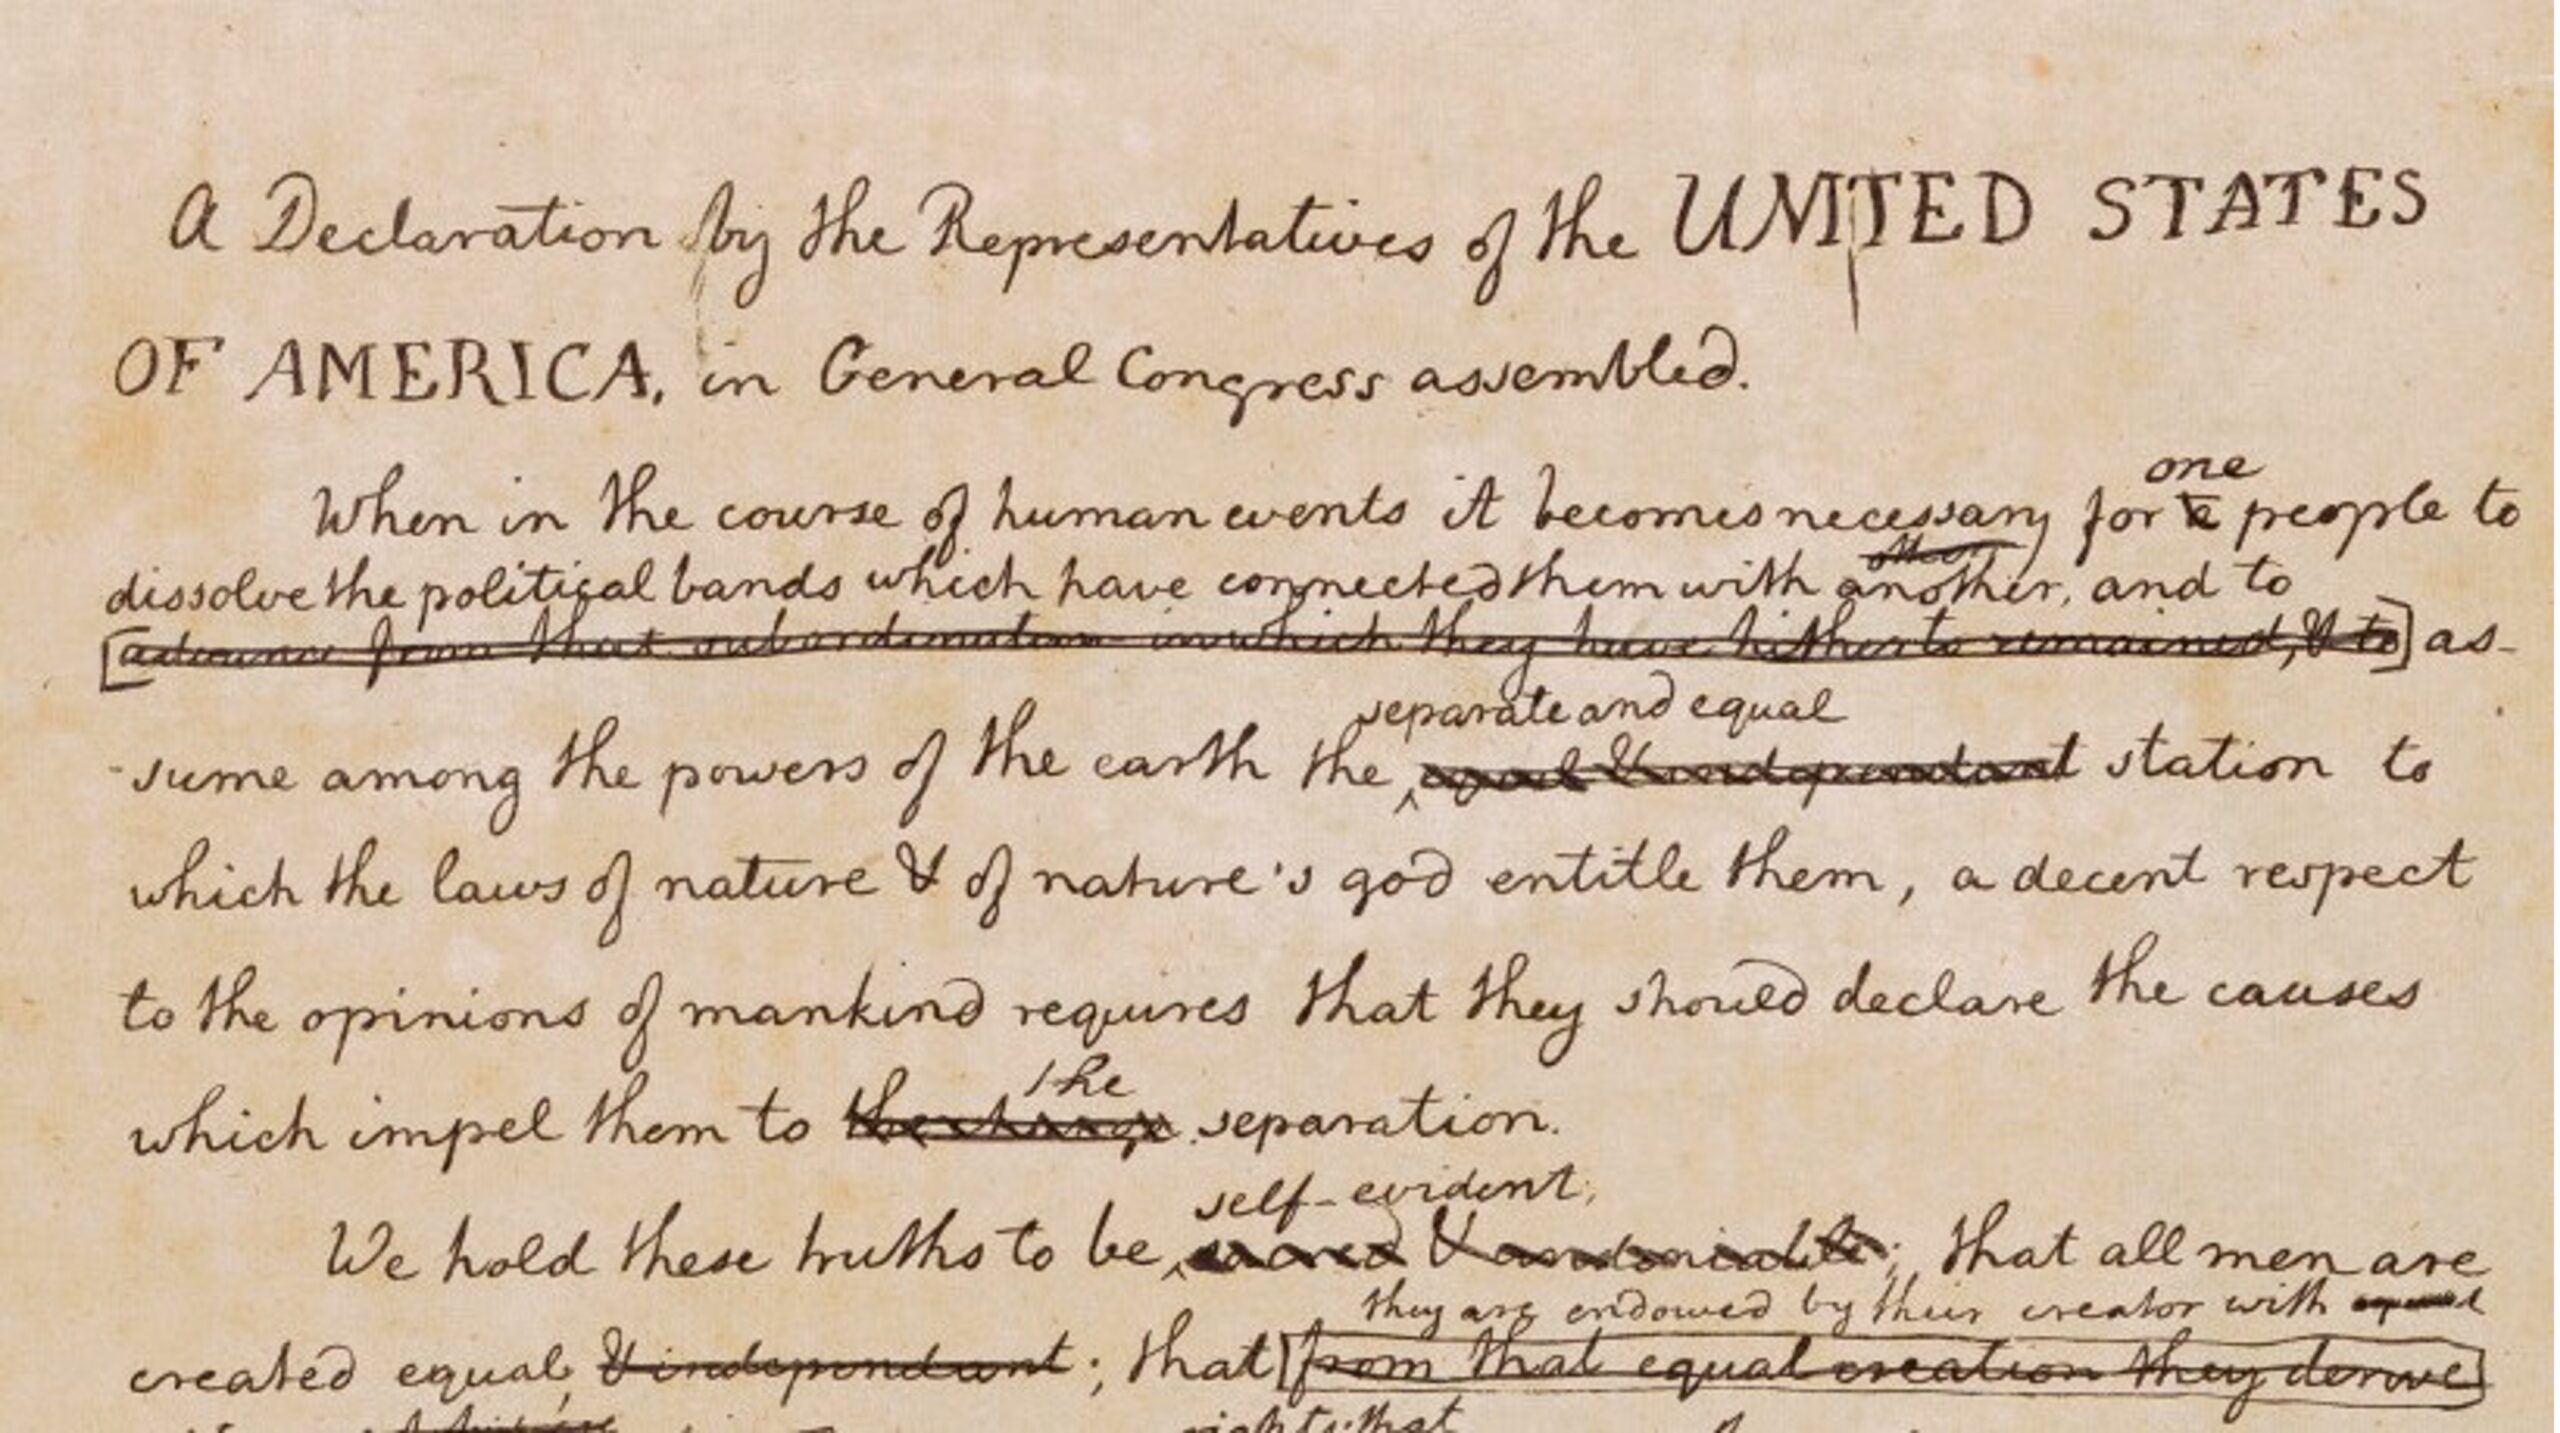 A Declaration by the Representatives of the UNITED STATES
OF AMERICA, in General Congress assembled.
one
When in the course of human events it becomes necessary for a people to
dissolve the political bands which have connected them with another, and to
advance from that subordination in which they have hitherto remained, & to as-
separate and equal
-sume among the powers of the earth the equal & independant station to
which the laws of nature & of nature's god entitle them, a decent respect
to the opinions of mankind requires that they should declare the causes
the
which impel them to the change separation.
self-evident;
We hold these truths to be sacred & undeniable; that all men are
they are endowed by their creator with equal
created equal & independant; that from that equal creation they derive
rights; that